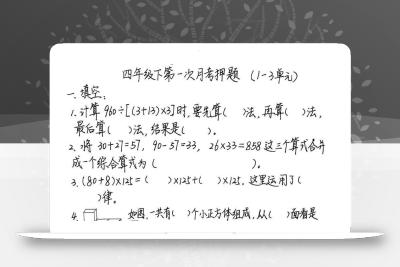 四年级下第一次月考押题 (1-3单元)
一、填空:
1.计算960÷[(3+13)×3]时,要先算( )法,再算( )法,
最后算( )法,结果是( )。
2.将30+27=57, 90-57=33, 26×33=858这三个算式合并
成一个综合算式为( )。
3.(80+8)×125=( )×125+( )×125,这里运用了(
)律。
4. 如图,一共有( )个小正方体组成,从( )面看是